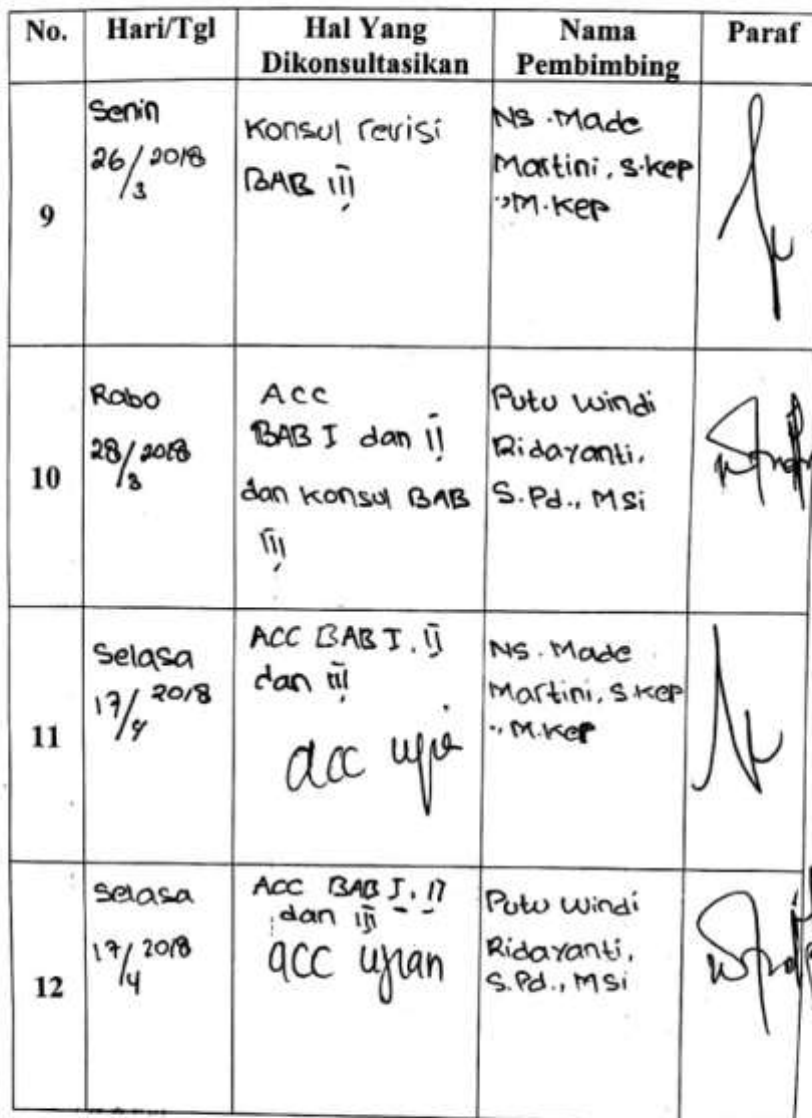 No. Hari/Tgl Hal Yang Dikonsultasikan Nama Pembimbing Paraf
9
Senin
26/3 2018
Konsul revisi
BAB III
Ns. Made
Martini, S.Kep
., M.Kep
10
Rabo
28/3 2018
Acc
BAB I dan II
dan konsul BAB
III
Putu Windi
Ridayanti,
S.Pd., MSi
11
Selasa
17/4 2018
ACC BAB I, II
dan III
acc ujia
Ns. Made
Martini, S.Kep
., M.Kep
12
Selasa
17/4 2018
ACC BAB I, II
dan III
acc ujian
Putu Windi
Ridayanti,
S.Pd., MSi